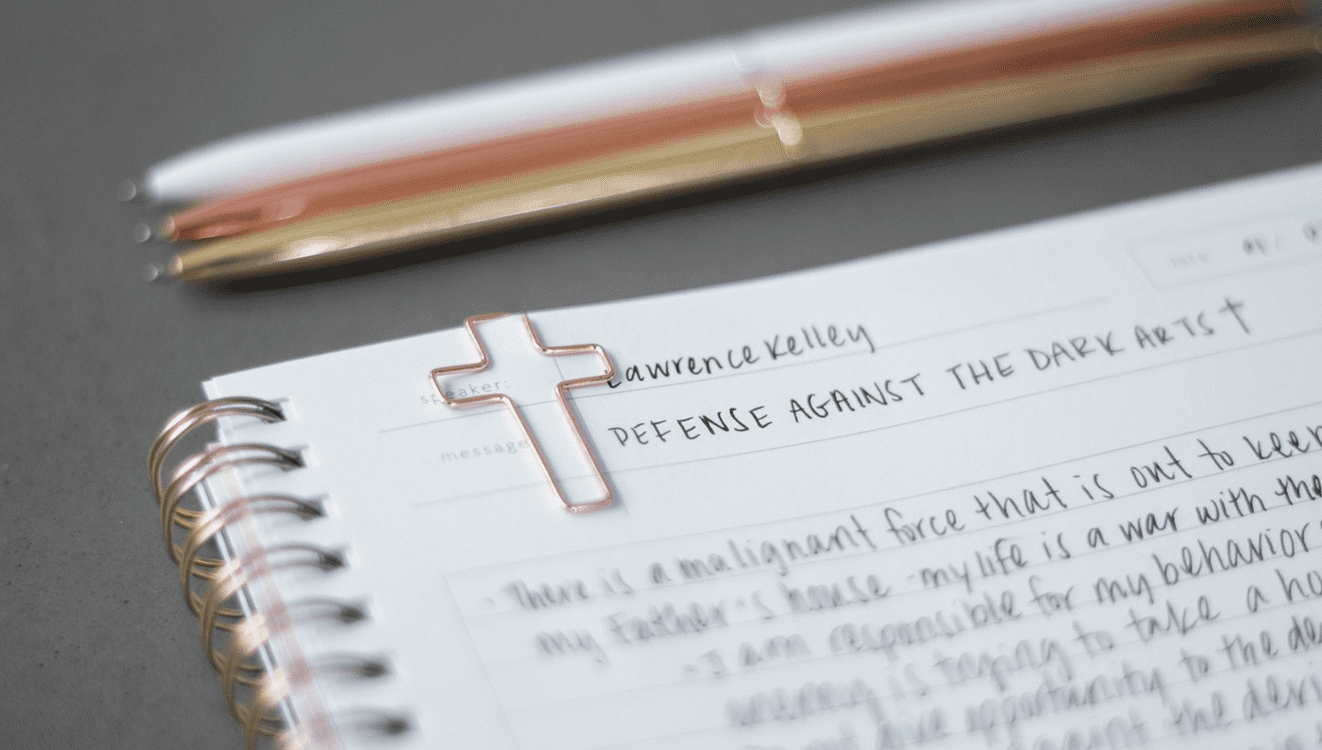 speaker: Lawrence Kelley
message DEFENSE AGAINST THE DARK ARTS
There is a malignant force that is out to keep
my Father's house - my life is a war with the
- I am responsible for my behavior
enemy is trying to take a
not give opportunity to the
against the